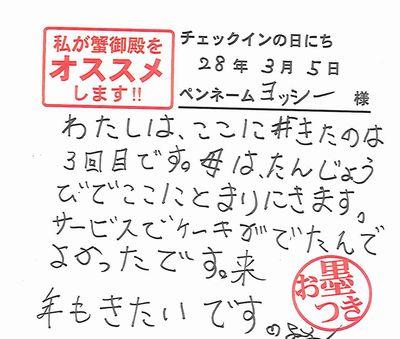 私が蟹御殿を
オススメ
します!!
チェックインの日にち
28年3月5日
ペンネームヨッシー様
わたしは、ここにきたのは
3回目です。母は、たんじょう
びでここにとまりにきます。
サービスでケーキがでたんで
よかったです。来
年もきたいです。
お墨
つき